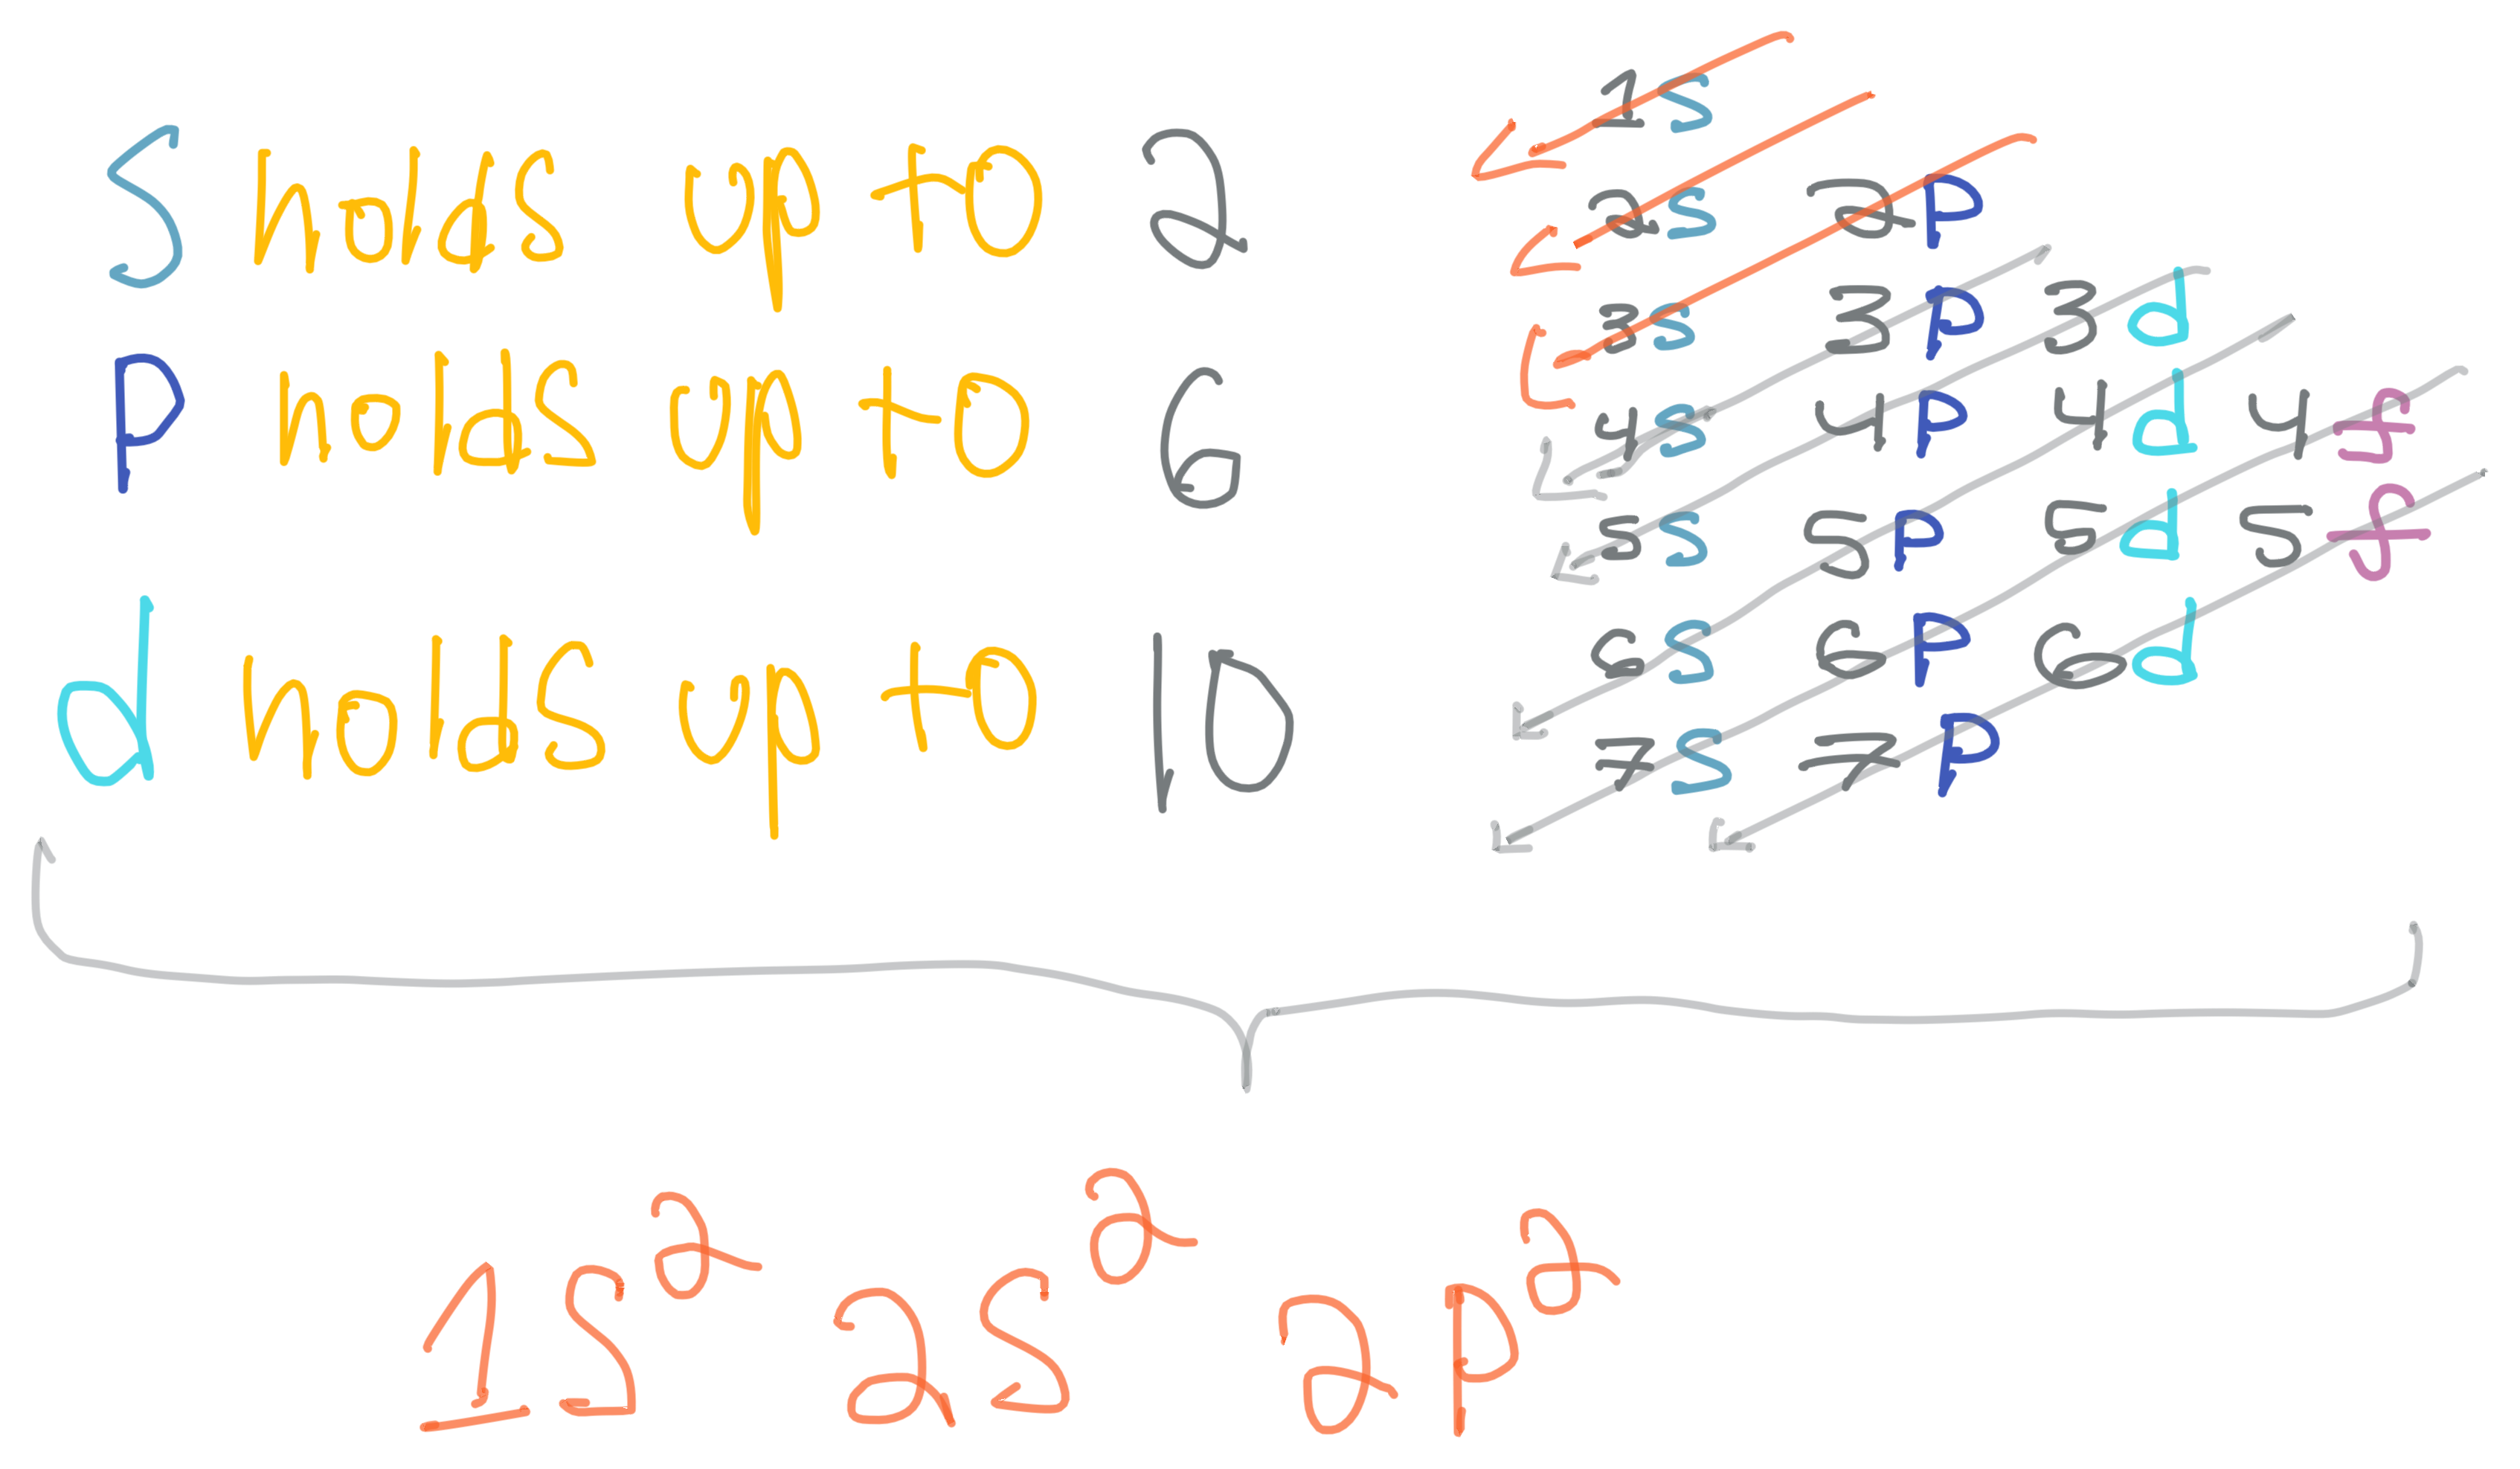 S holds up to 2
p holds up to 6
d holds up to 10
1s
2s 2p
3s 3p 3d
4s 4p 4d 4f
5s 5p 5d 5f
6s 6p 6d
7s 7p
1s² 2s² 2p²